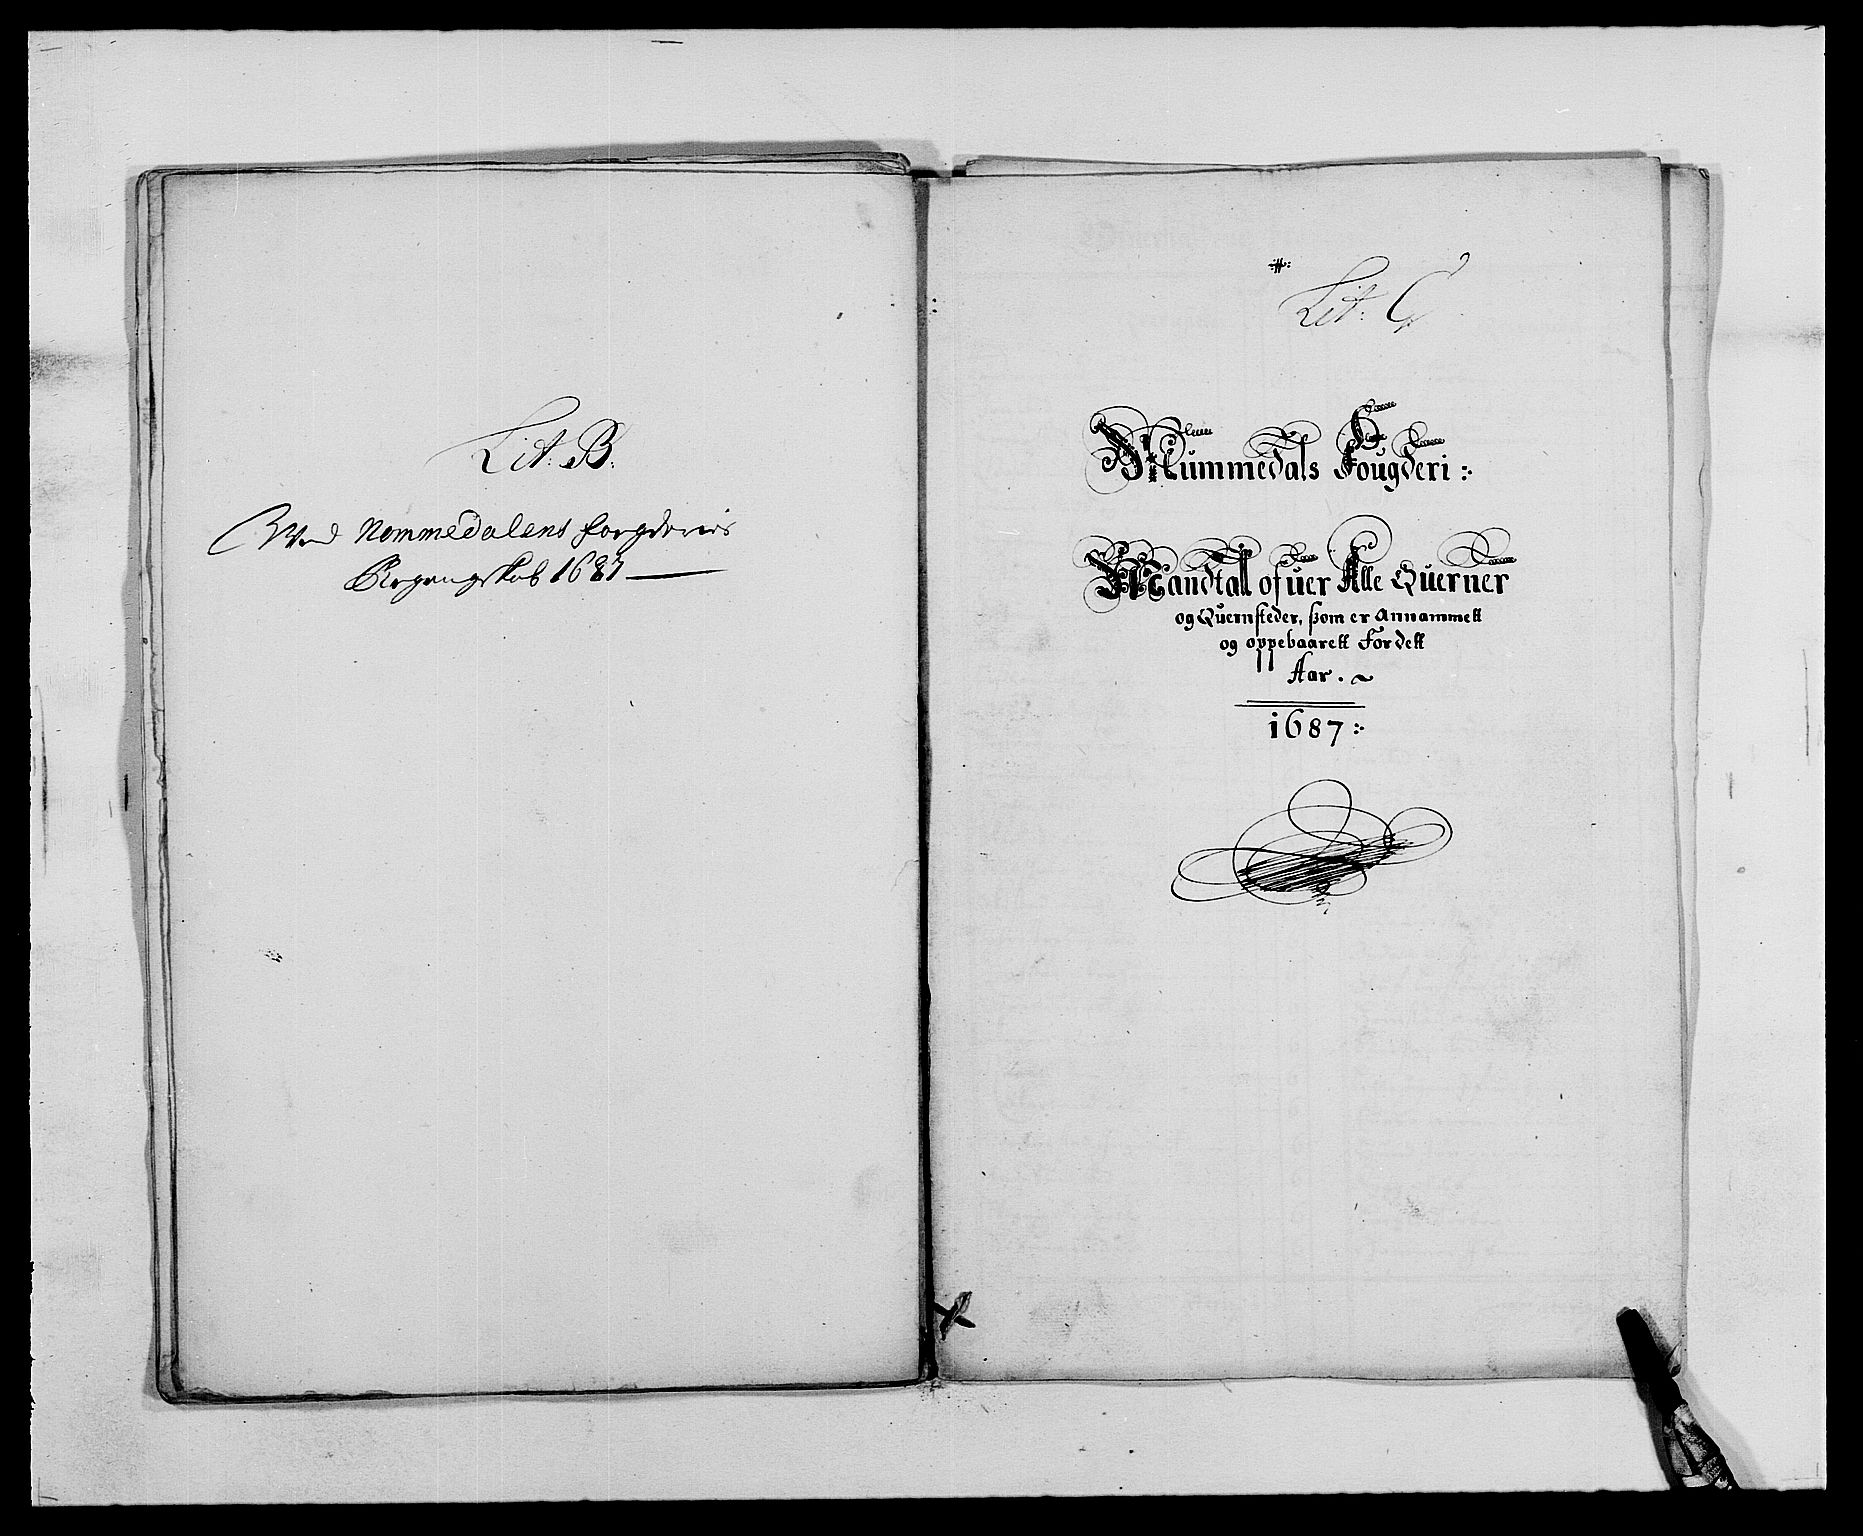 Lit: B:
Ved Nommedalens fougderies
Regenngskab 1687
Lit: C
Nummedals Fougderi:
Mandtall ofuer Alle Querner
og Quernsteder, som er Annammett
og oppebaarett Fordett
Aar.
1687: